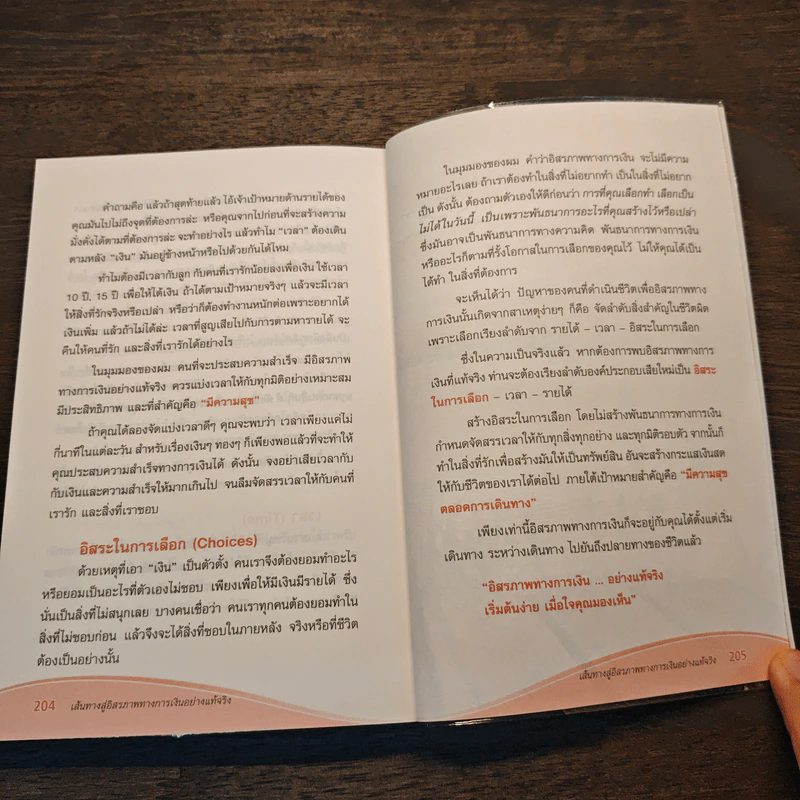 คำถามคือ แล้วถ้าสุดท้ายแล้ว ไอ้เจ้าเป้าหมายด้านรายได้ของ
คุณมันไปไม่ถึงจุดที่ต้องการล่ะ หรือคุณจากไปก่อนที่จะสร้างความ
มั่งคั่งได้ตามที่ต้องการล่ะ จะทำอย่างไร แล้วทำไม "เวลา" ต้องเดิน
ตามหลัง "เงิน" มันอยู่ข้างหน้าหรือไปด้วยกันได้ไหม
ทำไมต้องมีเวลากับลูก กับคนที่เรารักน้อยลงเพื่อเงิน ใช้เวลา
10 ปี, 15 ปี เพื่อให้ได้เงิน ถ้าได้ตามเป้าหมายจริงๆ แล้วจะมีเวลา
ให้สิ่งที่รักจริงหรือเปล่า หรือว่าก็ต้องทำงานหนักต่อเพราะอยากได้
เงินเพิ่ม แล้วถ้าไม่ได้ล่ะ เวลาที่สูญเสียไปกับการตามหารายได้ จะ
คืนให้คนที่รัก และสิ่งที่เรารักได้อย่างไร
ในมุมมองของผม คนที่จะประสบความสำเร็จ มีอิสรภาพ
ทางการเงินอย่างแท้จริง ควรแบ่งเวลาให้กับทุกมิติอย่างเหมาะสม
มีประสิทธิภาพ และที่สำคัญคือ "มีความสุข"
ถ้าคุณได้ลองจัดแบ่งเวลาดีๆ คุณจะพบว่า เวลาเพียงแค่ไม่
กี่นาทีในแต่ละวัน สำหรับเรื่องเงินๆ ทองๆ ก็เพียงพอแล้วที่จะทำให้
คุณประสบความสำเร็จทางการเงินได้ ดังนั้น จงอย่าเสียเวลากับ
กับเงินและความสำเร็จให้มากเกินไป จนลืมจัดสรรเวลาให้กับคนที่
เรารัก และสิ่งที่เราชอบ
อิสระในการเลือก (Choices)
ด้วยเหตุที่เอา "เงิน" เป็นตัวตั้ง คนเราจึงต้องยอมทำอะไร
หรือยอมเป็นอะไรที่ตัวเองไม่ชอบ เพียงเพื่อให้มีเงินมีรายได้ ซึ่ง
นั่นเป็นสิ่งที่ไม่สนุกเลย บางคนเชื่อว่า คนเราทุกคนต้องยอมทำใน
สิ่งที่ไม่ชอบก่อน แล้วจึงจะได้สิ่งที่ชอบในภายหลัง จริงหรือที่ชีวิต
ต้องเป็นอย่างนั้น
204 เส้นทางสู่อิสรภาพทางการเงินอย่างแท้จริง
ในมุมมองของผม คำว่าอิสรภาพทางการเงิน จะไม่มีความ
หมายอะไรเลย ถ้าเราต้องทำในสิ่งที่ไม่อยากทำ เป็นในสิ่งที่ไม่อยาก
เป็น ดังนั้น ต้องถามตัวเองให้ดีก่อนว่า การที่คุณเลือกทำ เลือกเป็น
ไม่ได้ในวันนี้ เป็นเพราะพันธนาการอะไรที่คุณสร้างไว้หรือเปล่า
ซึ่งมันอาจเป็นพันธนาการทางความคิด พันธนาการทางการเงิน
หรืออะไรก็ตามที่รั้งโอกาสในการเลือกของคุณไว้ ไม่ให้คุณได้เป็น
ได้ทำ ในสิ่งที่ต้องการ
จะเห็นได้ว่า ปัญหาของคนที่ดำเนินชีวิตเพื่ออิสรภาพทาง
การเงินนั้นเกิดจากสาเหตุง่ายๆ ก็คือ จัดลำดับสิ่งสำคัญในชีวิตผิด
เพราะเลือกเรียงลำดับจาก รายได้ – เวลา – อิสระในการเลือก
ซึ่งในความเป็นจริงแล้ว หากต้องการพบอิสรภาพทางการ
เงินที่แท้จริง ท่านจะต้องเรียงลำดับองค์ประกอบเสียใหม่เป็น อิสระ
ในการเลือก – เวลา – รายได้
สร้างอิสระในการเลือก โดยไม่สร้างพันธนาการทางการเงิน
กำหนดจัดสรรเวลาให้กับทุกสิ่งทุกอย่าง และทุกมิติรอบตัว จากนั้นก็
ทำในสิ่งที่รักเพื่อสร้างมันให้เป็นทรัพย์สิน อันจะสร้างกระแสเงินสด
ให้กับชีวิตของเราได้ต่อไป ภายใต้เป้าหมายสำคัญคือ "มีความสุข
ตลอดการเดินทาง"
เพียงเท่านี้อิสรภาพทางการเงินก็จะอยู่กับคุณได้ตั้งแต่เริ่ม
เดินทาง ระหว่างเดินทาง ไปยันถึงปลายทางของชีวิตแล้ว
"อิสรภาพทางการเงิน ... อย่างแท้จริง
เริ่มต้นง่าย เมื่อใจคุณมองเห็น"
เส้นทางสู่อิสรภาพทางการเงินอย่างแท้จริง 205